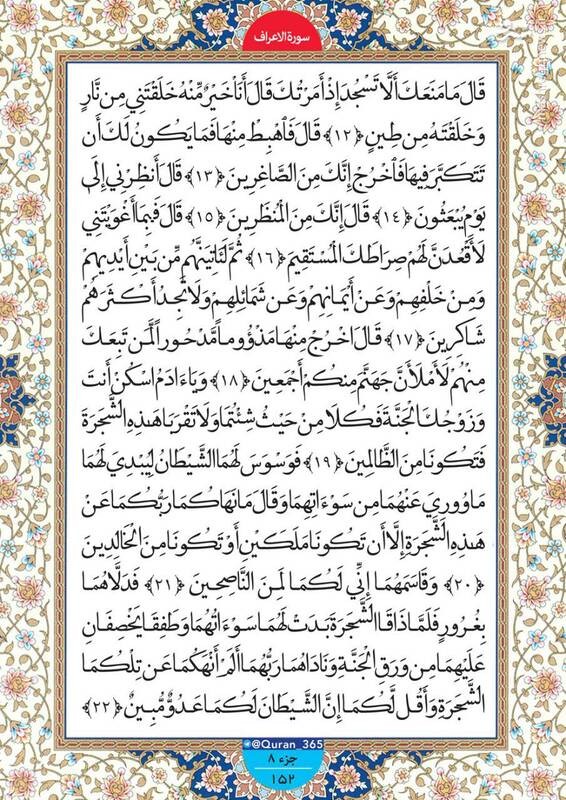 سورة الاعراف
قَالَ مَا مَنَعَكَ أَلَّا تَسْجُدَ إِذْ أَمَرْتُكَ قَالَ أَنَا خَيْرٌ مِّنْهُ خَلَقْتَنِي مِن نَّارٍ
وَخَلَقْتَهُ مِن طِينٍ ﴿١٢﴾ قَالَ فَاهْبِطْ مِنْهَا فَمَا يَكُونُ لَكَ أَن
تَتَكَبَّرَ فِيهَا فَاخْرُجْ إِنَّكَ مِنَ الصَّاغِرِينَ ﴿١٣﴾ قَالَ أَنظِرْنِي إِلَىٰ
يَوْمِ يُبْعَثُونَ ﴿١٤﴾ قَالَ إِنَّكَ مِنَ الْمُنظَرِينَ ﴿١٥﴾ قَالَ فَبِمَا أَغْوَيْتَنِي
لَأَقْعُدَنَّ لَهُمْ صِرَاطَكَ الْمُسْتَقِيمَ ﴿١٦﴾ ثُمَّ لَآتِيَنَّهُم مِّن بَيْنِ أَيْدِيهِمْ
وَمِنْ خَلْفِهِمْ وَعَنْ أَيْمَانِهِمْ وَعَن شَمَائِلِهِمْ وَلَا تَجِدُ أَكْثَرَهُمْ
شَاكِرِينَ ﴿١٧﴾ قَالَ اخْرُجْ مِنْهَا مَذْؤُومًا مَّدْحُورًا لَّمَن تَبِعَكَ
مِنْهُمْ لَأَمْلَأَنَّ جَهَنَّمَ مِنكُمْ أَجْمَعِينَ ﴿١٨﴾ وَيَاءَادَمُ اسْكُنْ أَنتَ
وَزَوْجُكَ الْجَنَّةَ فَكُلَا مِنْ حَيْثُ شِئْتُمَا وَلَا تَقْرَبَا هَٰذِهِ الشَّجَرَةَ
فَتَكُونَا مِنَ الظَّالِمِينَ ﴿١٩﴾ فَوَسْوَسَ لَهُمَا الشَّيْطَانُ لِيُبْدِيَ لَهُمَا
مَا وُورِيَ عَنْهُمَا مِن سَوْءَاتِهِمَا وَقَالَ مَا نَهَاكُمَا رَبُّكُمَا عَنْ
هَٰذِهِ الشَّجَرَةِ إِلَّا أَن تَكُونَا مَلَكَيْنِ أَوْ تَكُونَا مِنَ الْخَالِدِينَ
﴿٢٠﴾ وَقَاسَمَهُمَا إِنِّي لَكُمَا لَمِنَ النَّاصِحِينَ ﴿٢١﴾ فَدَلَّاهُمَا
بِغُرُورٍ فَلَمَّا ذَاقَا الشَّجَرَةَ بَدَتْ لَهُمَا سَوْءَاتُهُمَا وَطَفِقَا يَخْصِفَانِ
عَلَيْهِمَا مِن وَرَقِ الْجَنَّةِ وَنَادَاهُمَا رَبُّهُمَا أَلَمْ أَنْهَكُمَا عَن تِلْكُمَا
الشَّجَرَةِ وَأَقُل لَّكُمَا إِنَّ الشَّيْطَانَ لَكُمَا عَدُوٌّ مُّبِينٌ ﴿٢٢﴾
@Quran_365
جزء ۸
۱۵۲